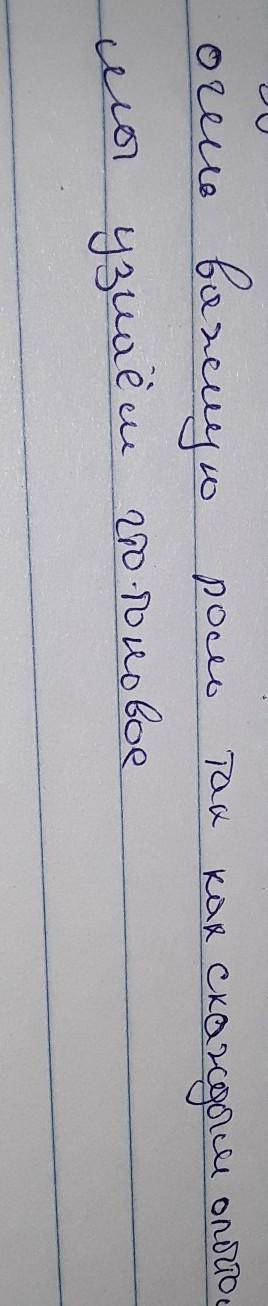 очень важную роль так как скаждым опыто
мы узнаём что-то новое